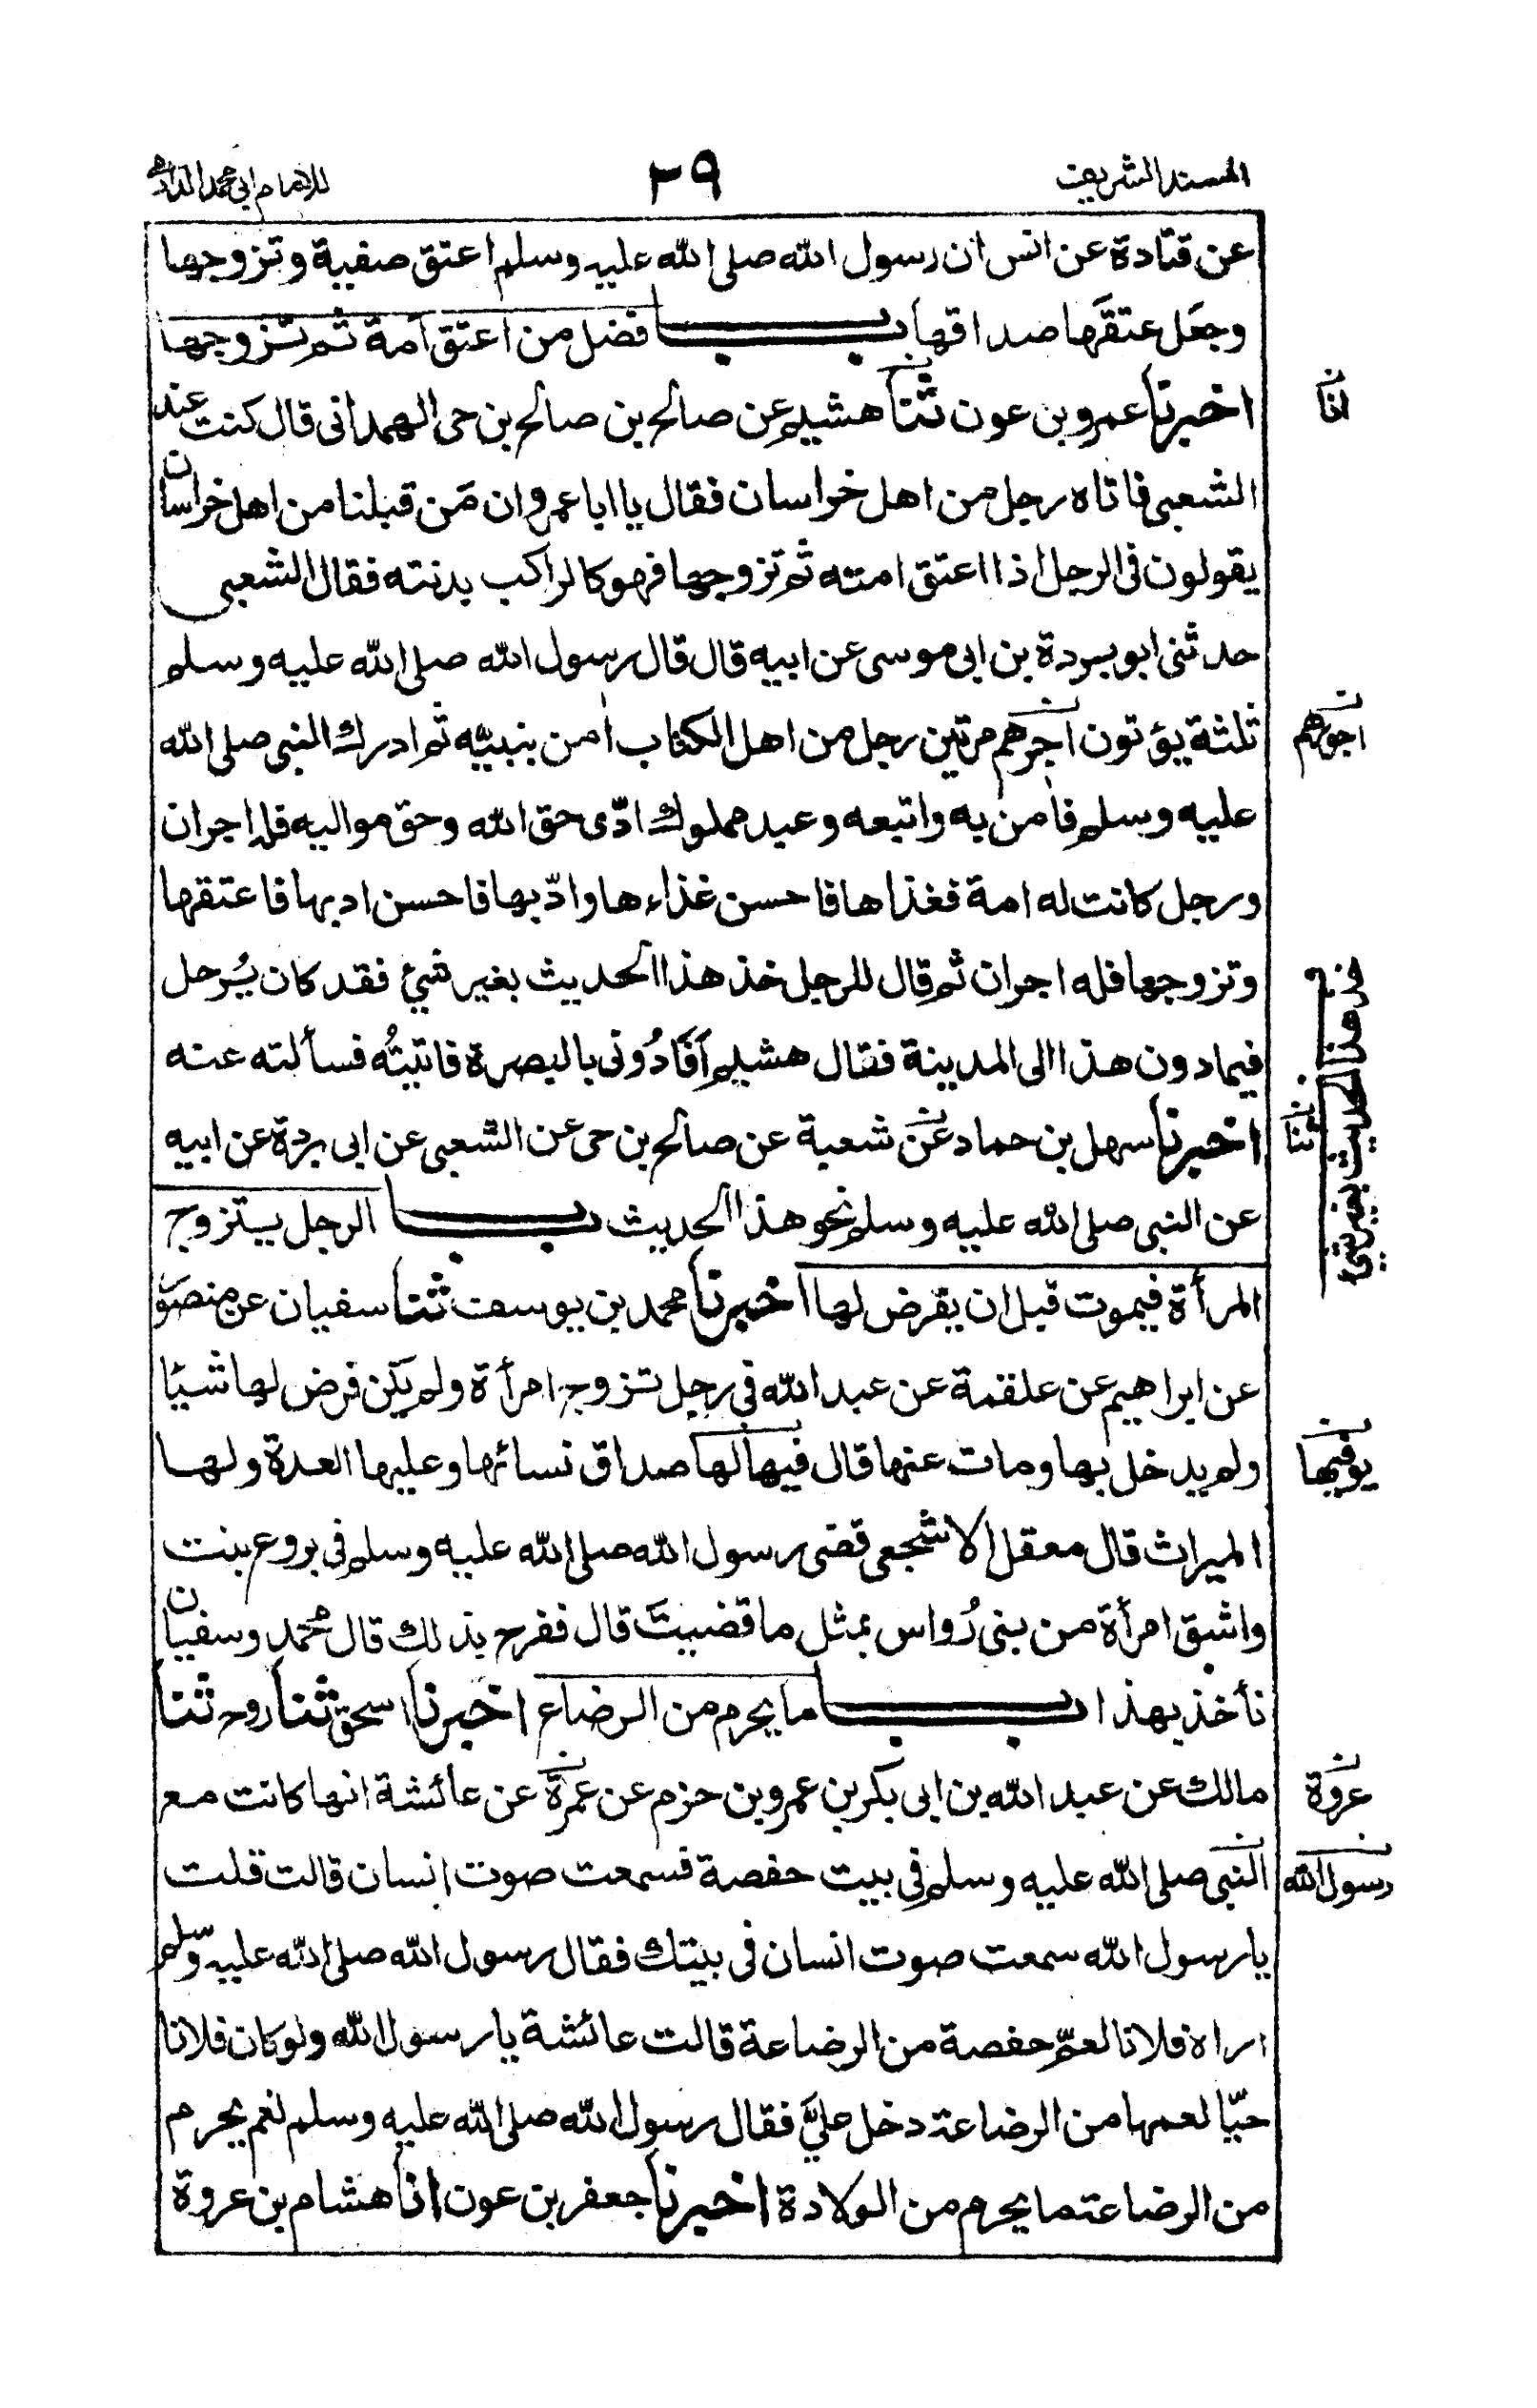 المسند الشريف
٢٩
للامام ابى محمد الدارمى
عن قتادة عن انس ان رسول الله صلى الله عليه وسلم اعتق صفية وتزوجها
وجعَل عتقَها صداقها باب فضل من اعتق اَمة ثم تزوجها
اخبرنا عمرو بن عون ثنا هشيم عن صالح بن صالح بن حى الهمدانى قال كنت عند
الشعبى فاتاه رجل من اهل خراسان فقال يا ابا عمرو ان مَن قبلنا من اهل خراسان
يقولون فى الرجل اذا اعتق امته ثم تزوجها فهو كالراكب بدنته فقال الشعبى
حدثنى ابو بردة بن ابى موسى عن ابيه قال قال رسول الله صلى الله عليه وسلم
ثلثة يؤتون اجرهم مرتين رجل من اهل الكتاب اٰمن بنبيّه ثم ادرك النبى صلى الله
عليه وسلم فاٰمن به واتبعه وعبد مملوك ادّى حق الله وحق مواليه فله اجران
ورجل كانت له امة فغذاها فاحسن غذاءها وادّبها فاحسن ادبها فاعتقها
وتزوجها فله اجران ثم قال للرجل خذ هذا الحديث بغير شئ فقد كان يُرحل
فيما دون هذا الى المدينة فقال هشيم اَفَادُونى بالبصرة فاتيتُه فسألته عنه
اخبرنا سهل بن حماد عن شعبة عن صالح بن حى عن الشعبى عن ابى بردة عن ابيه
عن النبى صلى الله عليه وسلم نحو هذا الحديث باب الرجل يتزوج
المرأة فيموت قبل ان يفرض لها اخبرنا محمد بن يوسف ثنا سفيان عن منصور
عن ابراهيم عن علقمة عن عبد الله فى رجل تزوج امرأة ولم يكن فرض لها شيئا
ولم يدخل بها ومات عنها قال فيها لها صداق نسائها وعليها العدة ولها
الميراث قال معقل الاشجعى قضى رسول الله صلى الله عليه وسلم فى بروع بنت
واشق امرأة من بنى رُواس بمثل ما قضيتَ قال ففرح بذلك قال محمد وسفيان
نأخذ بهذا باب ما يحرم من الرضاع اخبرنا اسحق ثنا روح ثنا
مالك عن عبد الله بن ابى بكر بن عمرو بن حزم عن عمرة عن عائشة انها كانت مع
النبى صلى الله عليه وسلم فى بيت حفصة فسمعت صوت انسان قالت قلت
يا رسول الله سمعت صوت انسان فى بيتك فقال رسول الله صلى الله عليه وسلم
اراه فلانا لعمّ حفصة من الرضاعة قالت عائشة يا رسول الله ولو كان فلانا
حيّا لعمها من الرضاعة دخل عليَّ فقال رسول الله صلى الله عليه وسلم نعم يحرم
من الرضاعة ما يحرم من الولادة اخبرنا جعفر بن عون انا هشام بن عروة
انا
اجورهم
خذ هذا الحديث بغير شئ
ثنا
يوفيها
عروة
رسول الله